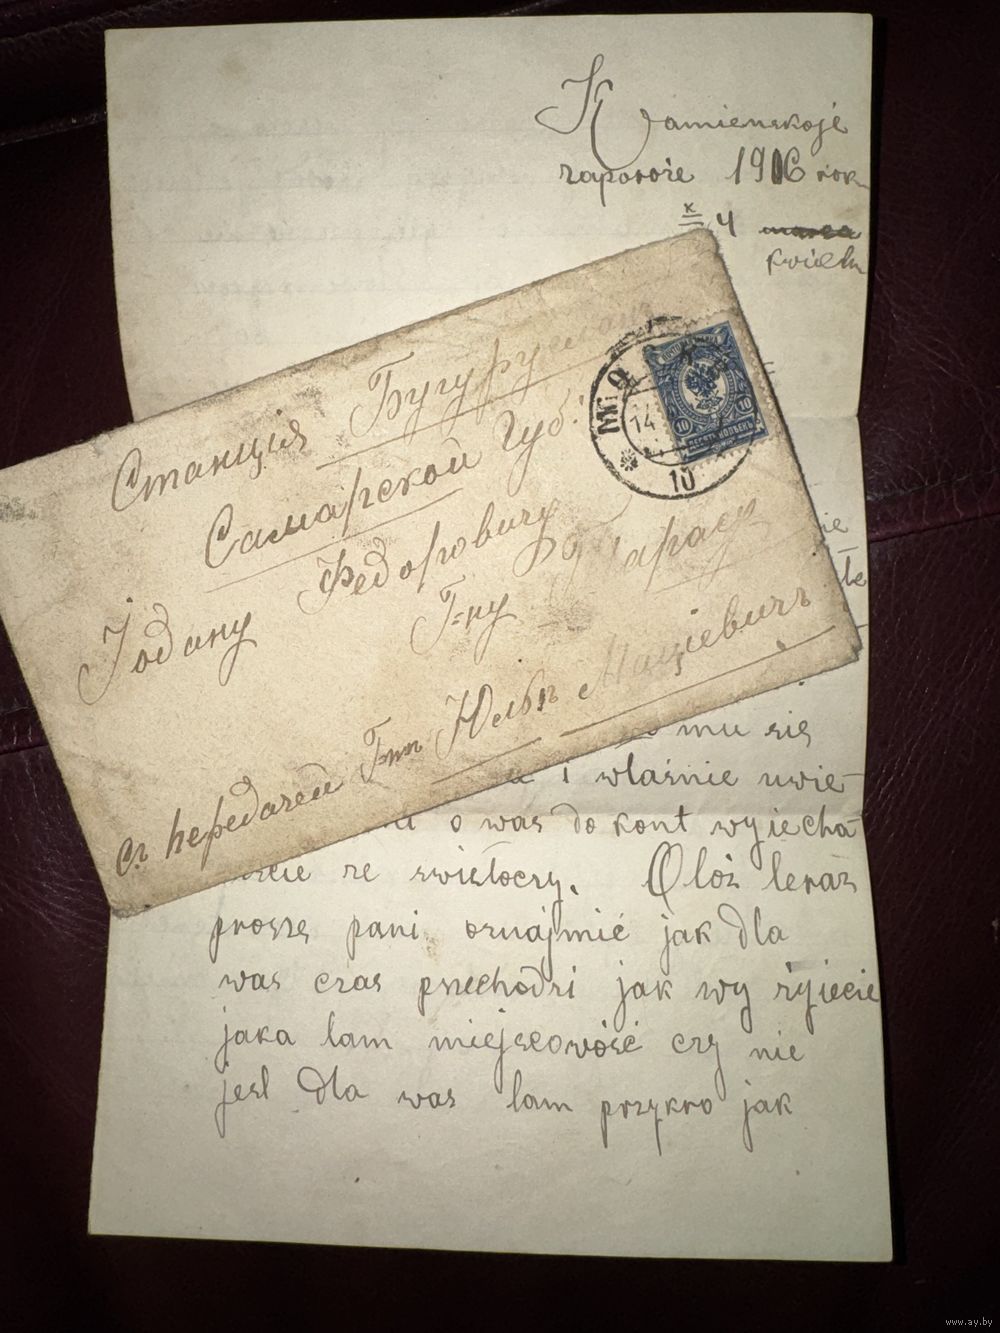 Kamienskoje
zaporoże 1916 rok
4 marca
kwietn
Станція Бугурусланъ
Самарской Губ.
Іодану Федоровичу
Г-ну
съ передачей Г-жѣ Юльѣ Мацкевичъ
10
ДЕСЯТЬ КОПѢЕКЪ
10
14
10
mu się
i właśnie uwie-
o was do kont wyiecha
ście ze swisłoczy. Otóż teraz
proszę pani oznajmić jak dla
was czas przechodzi jak wy żyiecie
jaka tam miejscowość czy nie
jest dla was tam przykro jak
www.ay.by